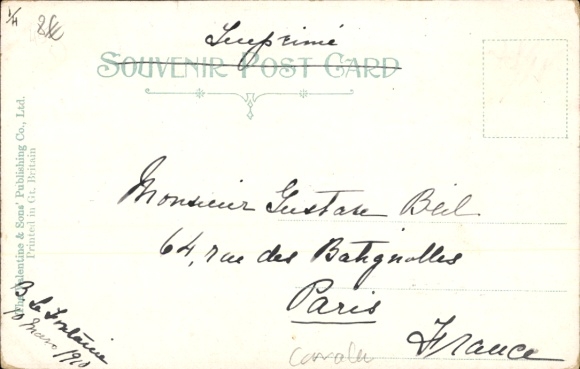 1/H
Imprimé
SOUVENIR POST CARD
The Valentine & Sons' Publishing Co., Ltd.
Printed in Gt. Britain
Monsieur Gustave Beil.
64, rue des Batignolles
Paris
France
B Le Fontaine
10 Mars 1910